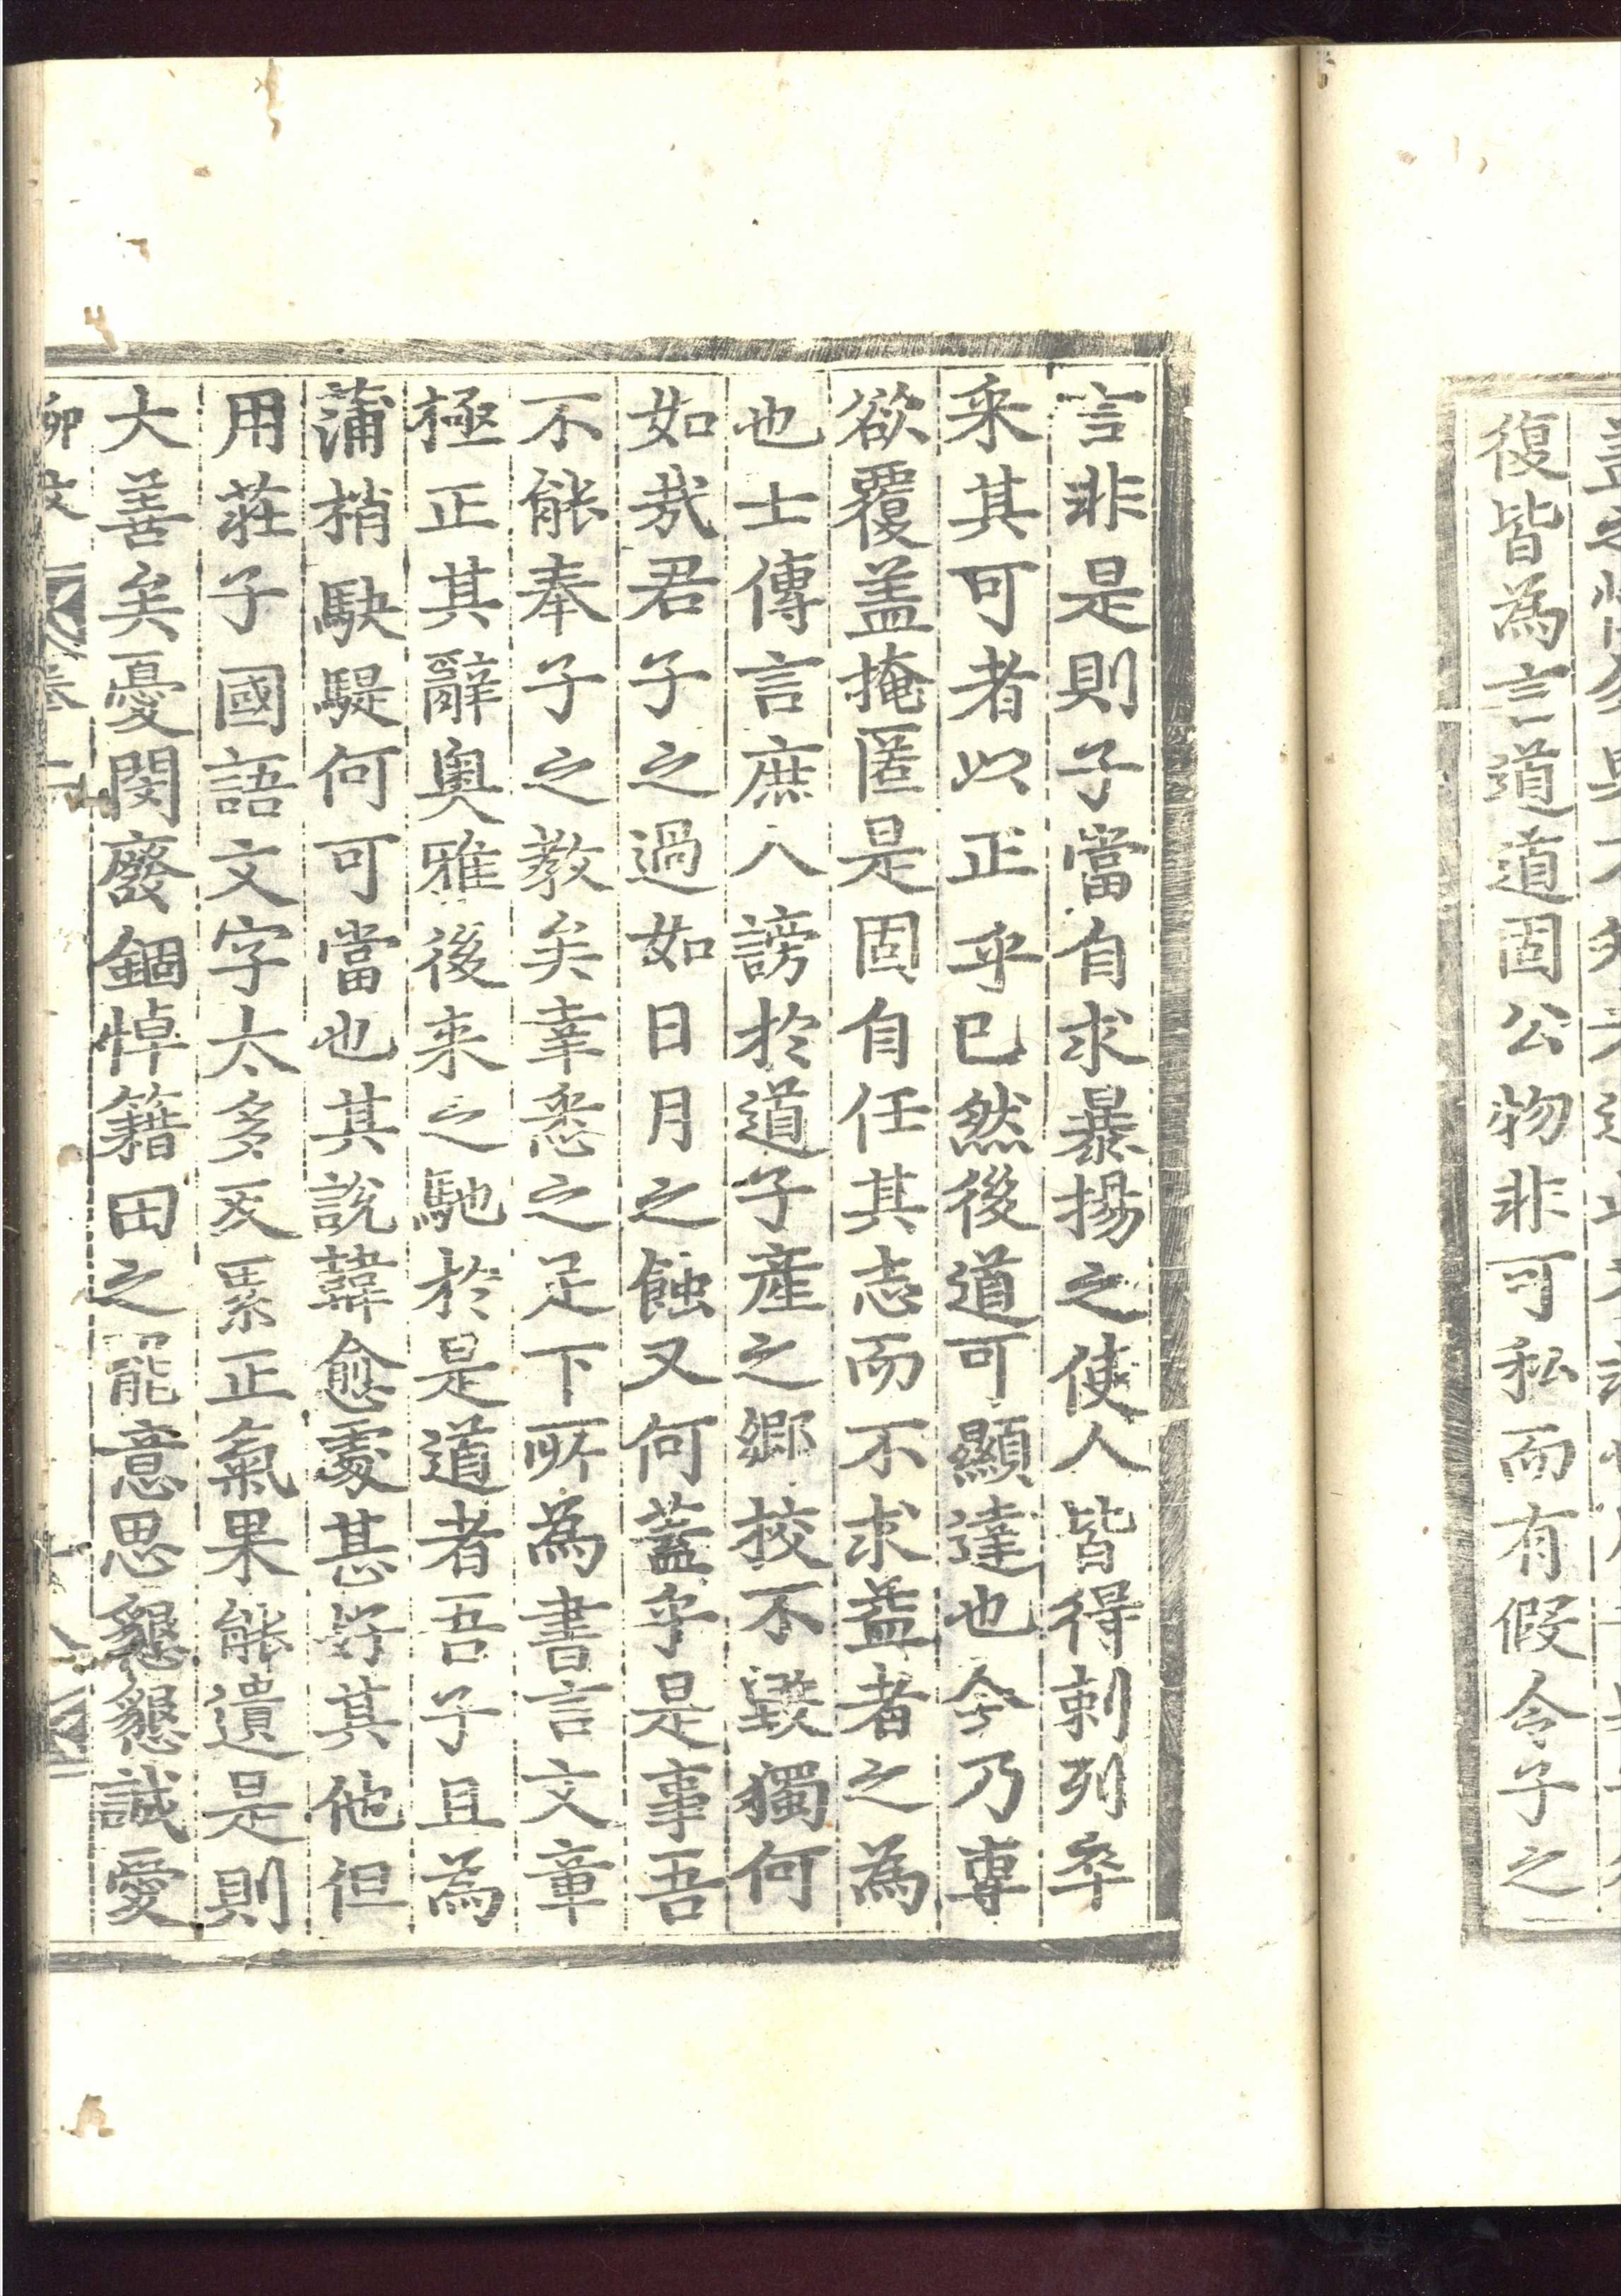 復皆為言道道固公物非可私而有假令子之
言非是則子當自求暴揚之使人皆得刺列卒
来其可者以正乎己然後道可顯達也今乃專
欲覆盖掩匿是固自任其志而不求益者之為
也士傳言庶人謗於道子產之鄉校不毀獨何
如㢤君子之過如日月之蝕又何蓋乎是事吾
不能奉子之教矣幸悉之足下所為書言文章
極正其辭奧雅後来之馳於是道者吾子且為
蒲梢駃騠何可當也其說韓愈處甚好其他但
用莊子國語文字太多反累正氣果能遺是則
大善矣憂閔廢錮悼籍田之罷意思懇懇誠愛
柳文